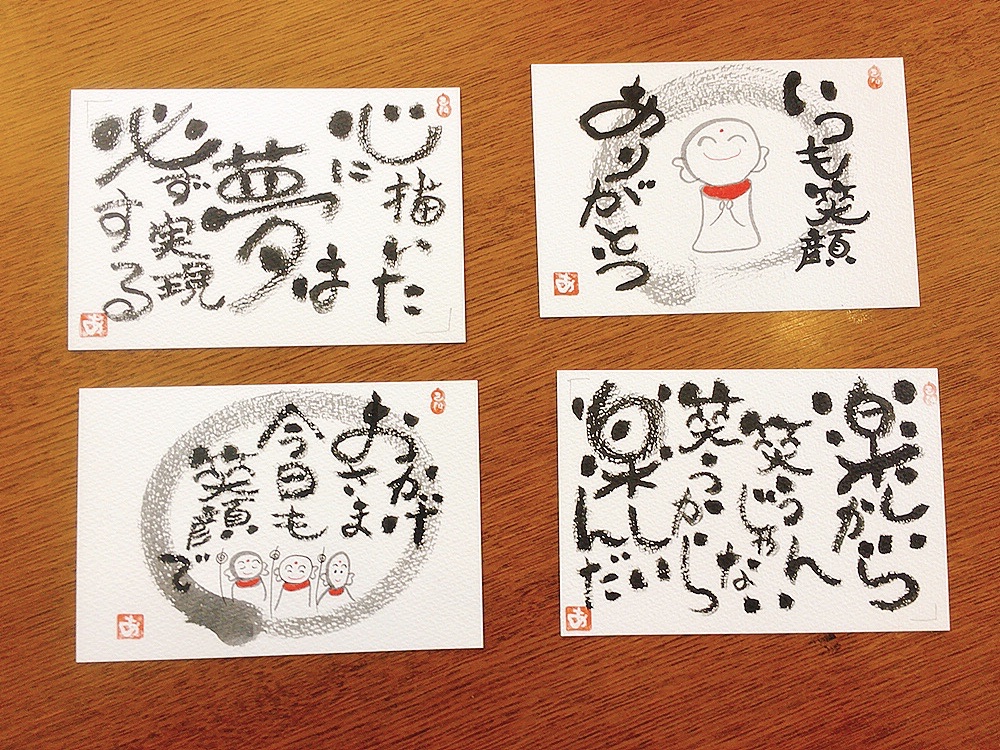 心に
描いた
夢は
必ず実現
する
あ
いつも笑顔
ありがとう
あ
おかげ
さま
今日も
笑顔で
あ
楽しいから
笑うん
じゃない
笑うから
楽しいんだ
あ